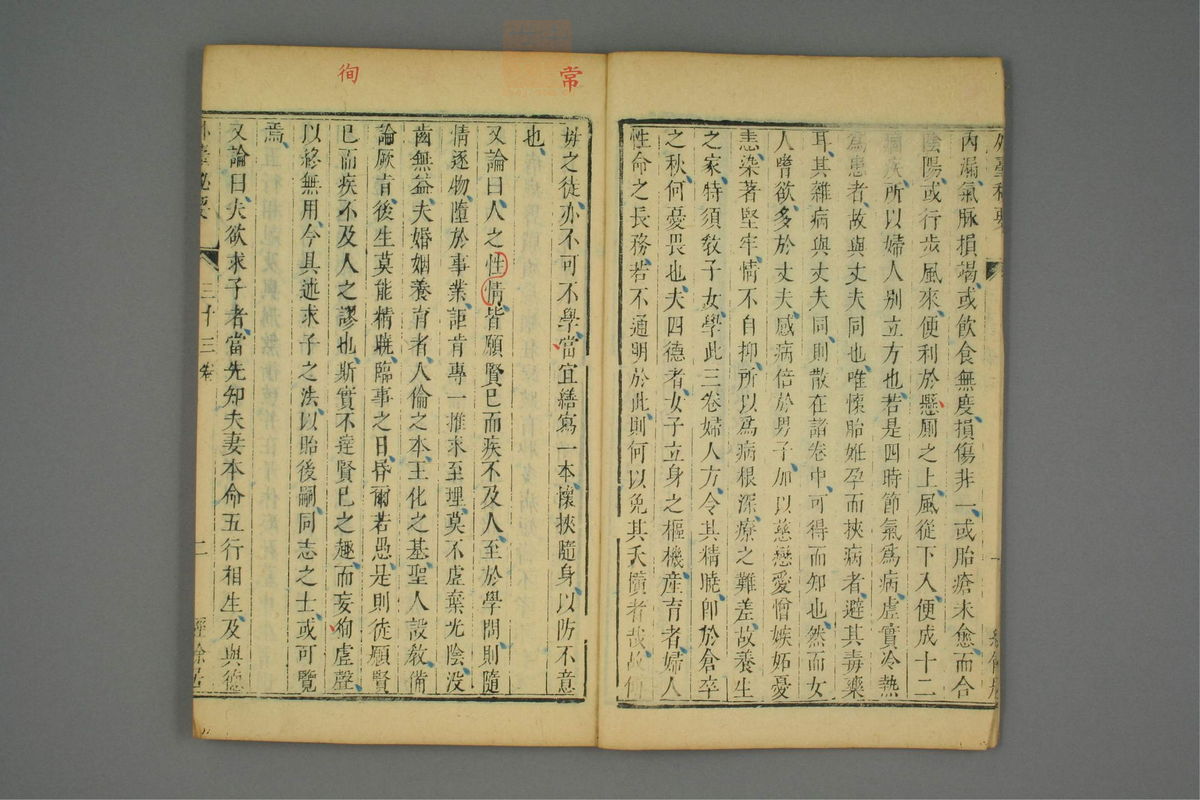 內漏氣脉損竭或飲食無度損傷非一或胎瘡未愈而合
陰陽或行步風來便利於懸厠之上風從下入便成十二
痼疾所以婦人别立方也若是四時節氣爲病虛實冷熱
爲患者故與丈夫同也唯懷胎姙孕而挾病者避其毒藥
耳其雜病與丈夫同則散在諸卷中可得而知也然而女
人嗜欲多於丈夫感病倍於男子加以慈戀愛憎嫉妬憂
恚染著堅牢情不自抑所以爲病根深療之難差故養生
之家特須敎子女學此三卷婦人方令其精曉卽於倉卒
之秋何憂畏也夫四德者女子立身之樞機產育者婦人
性命之長務若不通明於此則何以免其夭隤者哉故
常
徇
毋之徒亦不可不學當宜繕寫一本懷挾隨身以防不意
也
又論曰人之性情皆願賢已而疾不及人至於學問則隨
情逐物墮於事業詎肯專一推求至理莫不虛棄光陰没
齒無益夫婚姻養育者人倫之本王化之基聖人設敎備
論厥旨後生莫能精曉臨事之日昏爾若愚是則徒願賢
已而疾不及人之謬也斯實不達賢已之趣而妄徇虛聲
以終無用今具述求子之法以貽後嗣同志之士或可覽
焉
又論曰夫欲求子者當先知夫妻本命五行相生及與德
三十三卷
二
經餘居